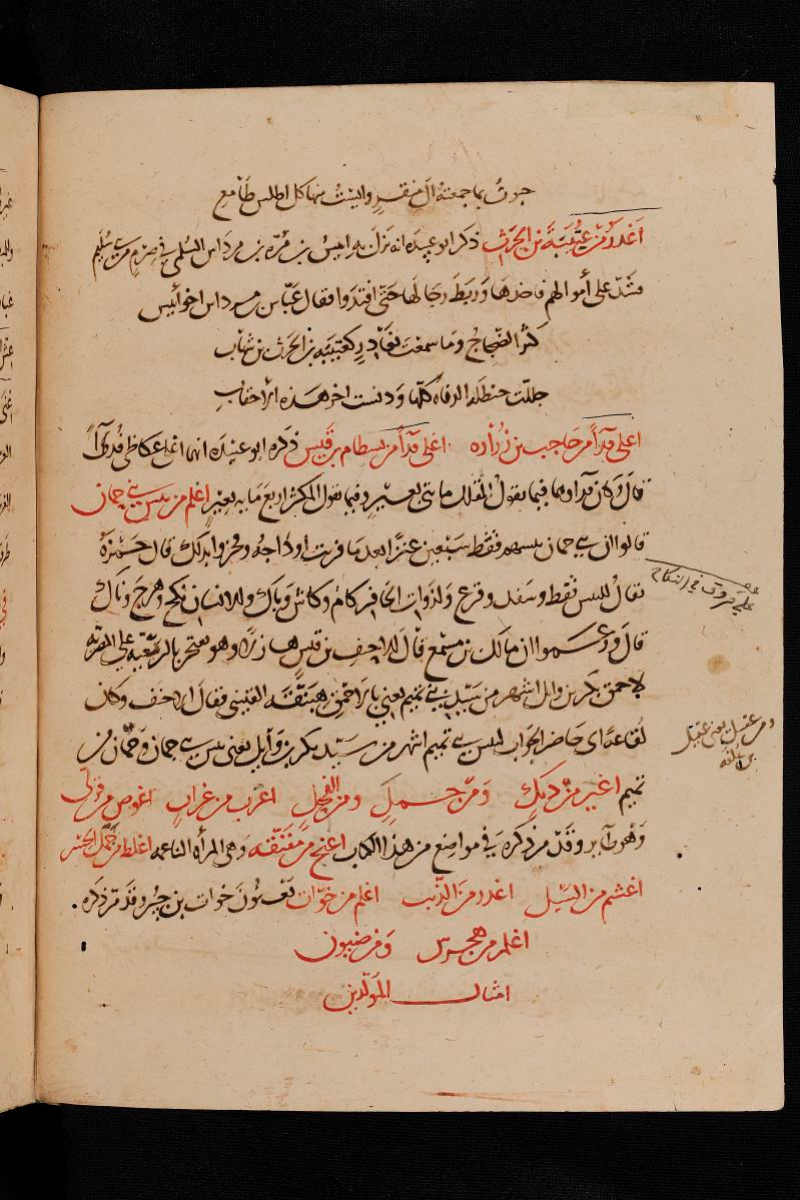 حبوت بما جمعته آل منقر وآيست منها كل اطلس طامع
اغدر من عتيبة بن الحرث ذكر ابو عبيده انه نزل به انيس بن مره بن مرداس السلمي في صرم من بني سليم
فشد على أموالهم فاخذها وربط رجالها حتى افتدوا فقال عباس بن مرداس اخو انيس
كثر الضجاج وما سمعت بغادر كعتيبة بن الحرث بن شهاب
جللت حنظلة الدناه كلها ودنست اخر هذه الاحقاب
اغلى فداً من حاجب بن زراره اغلى فداً من بسطام بن قيس ذكره ابو عبيده انهما اغلى عكاظي فدآءً
قال وكان فداوهما فيما يقول المقلل مائتي بعير وفيما يقول المكثر اربع مايه بعير اغلم من تيس بني حمان
قالوا ان بني حمان تيسهم فقط سبعين عنزا بعد ما فريت اوداجه وفخروا بذلك قال حمزة
يقال للتيس قفط وسفد وقرع ولذوات الحافر كام وكاش وباك وللانسان نكح وهرج وناك
قال وزعموا ان مالك بن مسمع قال للاحنف بن قيس هازلا وهو يفتخر بالربعيه على المضريه
لاحمق بكر بن وائل اشهر من سيد بني تميم يعني بالاحمق هبنقه القيسي فقال الاحنف وكان
لقاعة اي حاضر الجواب لتيس بني تميم اشهر من سيد بكر بن وآيل يعني تيس بني حمان وحمان من
تميم اغير من ديك ومن جمل ومن الفحل اغرب من غراب اغوص من قرلى
وهو طآير وقد مر ذكره في مواضع من هذا الكتاب اغنج من مفنقه وهي المرأه الناعمه اغلظ من حمل الجسر
اغشم من السيل اغدر من الذيب اغلم من خوات يعنون خوات بن جبير وقد مر ذكره .
اغلم من هجرس ومن ضيون
امثال المولدين